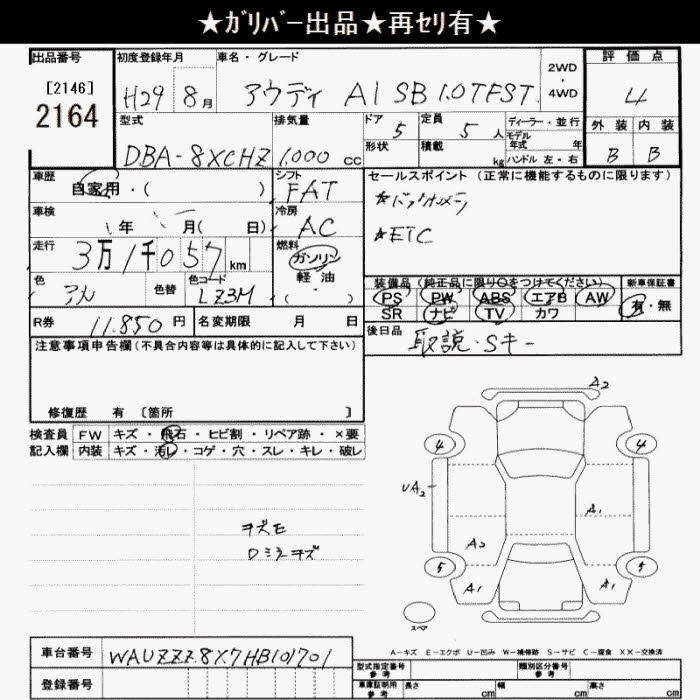 ★ガリバー出品★再セリ有★
出品番号 初度登録年月 車名・グレード 2WD・4WD 評価点
[2146]
2164
H29 8月 アウディ A1 SB 1.0TFST 4
型式 排気量 ドア 定員 ディーラー・並行 外装 内装
5 5人 モデル年式 年
形状 積載 kg ハンドル 左・右
DBA-8XCHZ 1,000cc B B
車歴 シフト セールスポイント (正常に機能するものに限ります)
自家用・( ) FAT
★バックカメラ
車検 冷房
年 月( 日) AC
★ETC
走行 燃料
3万1千057km ガソリン
軽油
( )
色 色替 色コード
LZ3M
装備品 (純正品に限り○をつけてください) 新車保証書
PS PW ABS エアB AW 有・無
SR ナビ TV カワ
R券 11,850円 名変期限 月 日
後日品 取説・Sキー
注意事項申告欄(不具合内容等は具体的に記入して下さい)
修復歴 有 [箇所 ]
検査員 FW キズ・飛石・ヒビ割・リペア跡・×要
記入欄 内装 キズ・汚レ・コゲ・穴・スレ・キレ・破レ
A2
4 4
UA2
A1
A2
5 5
A1 A1
スペア
A-キズ E-エクボ U-凹み W-補修跡 S-サビ C-腐食 XX-交換済
車台番号 WAUZZZ8X7HB101701
登録番号
型式指定番号 参考 類別区分番号 参考
車庫証明用 参考 長さ cm 幅 cm 高さ cm